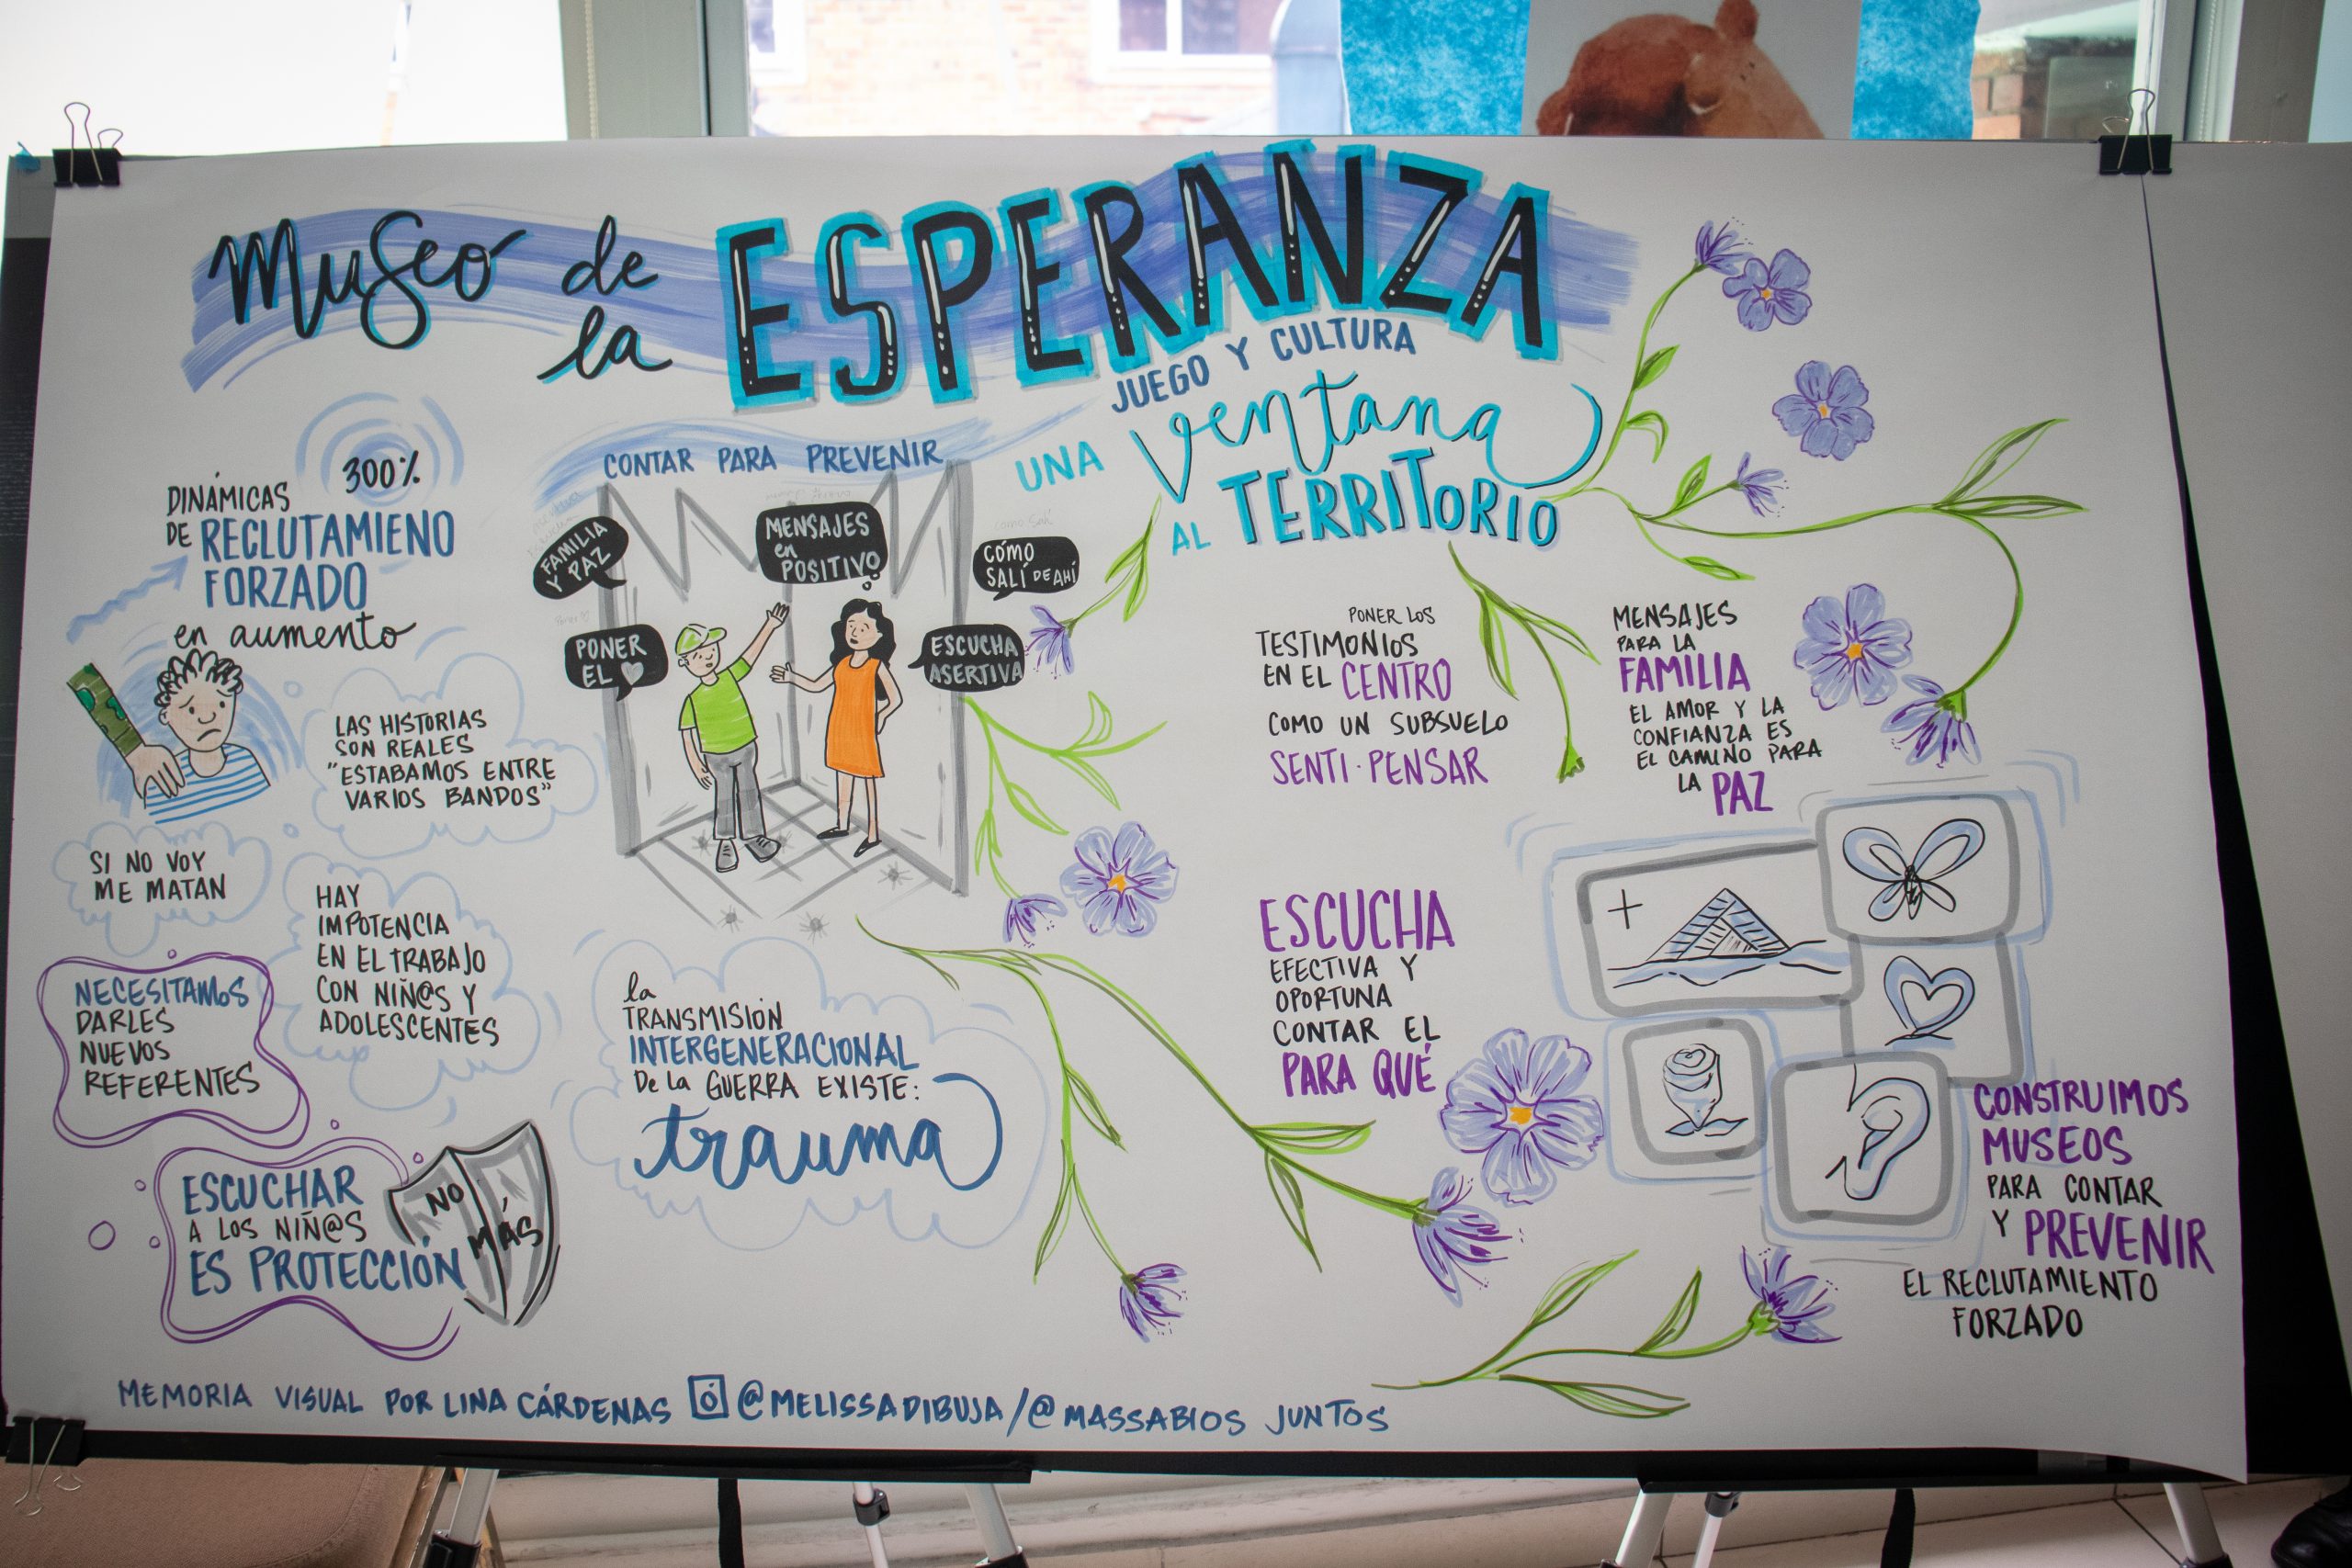 Museo de
la ESPERANZA
JUEGO Y CULTURA
UNA Ventana
AL TERRITORIO
300%
DINÁMICAS
DE RECLUTAMIENO
FORZADO
en aumento
LAS HISTORIAS
SON REALES
"ESTABAMOS ENTRE
VARIOS BANDOS"
SI NO VOY
ME MATAN
HAY
IMPOTENCIA
EN EL TRABAJO
CON NIÑ@S Y
ADOLESCENTES
NECESITAMOS
DARLES
NUEVOS
REFERENTES
ESCUCHAR
A LOS NIÑ@S
ES PROTECCIÓN
NO
MÁS
CONTAR PARA PREVENIR
FAMILIA
Y PAZ
MENSAJES
en
POSITIVO
CÓMO
SALÍ DE AHÍ
PONER
EL
ESCUCHA
ASERTIVA
la
TRANSMISIÓN
INTERGENERACIONAL
De la GUERRA EXISTE:
trauma
PONER LOS
TESTIMONIOS
EN EL CENTRO
COMO UN SUBSUELO
SENTI·PENSAR
MENSAJES
PARA LA
FAMILIA
EL AMOR Y LA
CONFIANZA ES
EL CAMINO PARA
LA PAZ
ESCUCHA
EFECTIVA Y
OPORTUNA
CONTAR EL
PARA QUÉ
CONSTRUIMOS
MUSEOS
PARA CONTAR
Y PREVENIR
EL RECLUTAMIENTO
FORZADO
MEMORIA VISUAL POR LINA CÁRDENAS @MELISSADIBUJA/@MASSABIOS JUNTOS